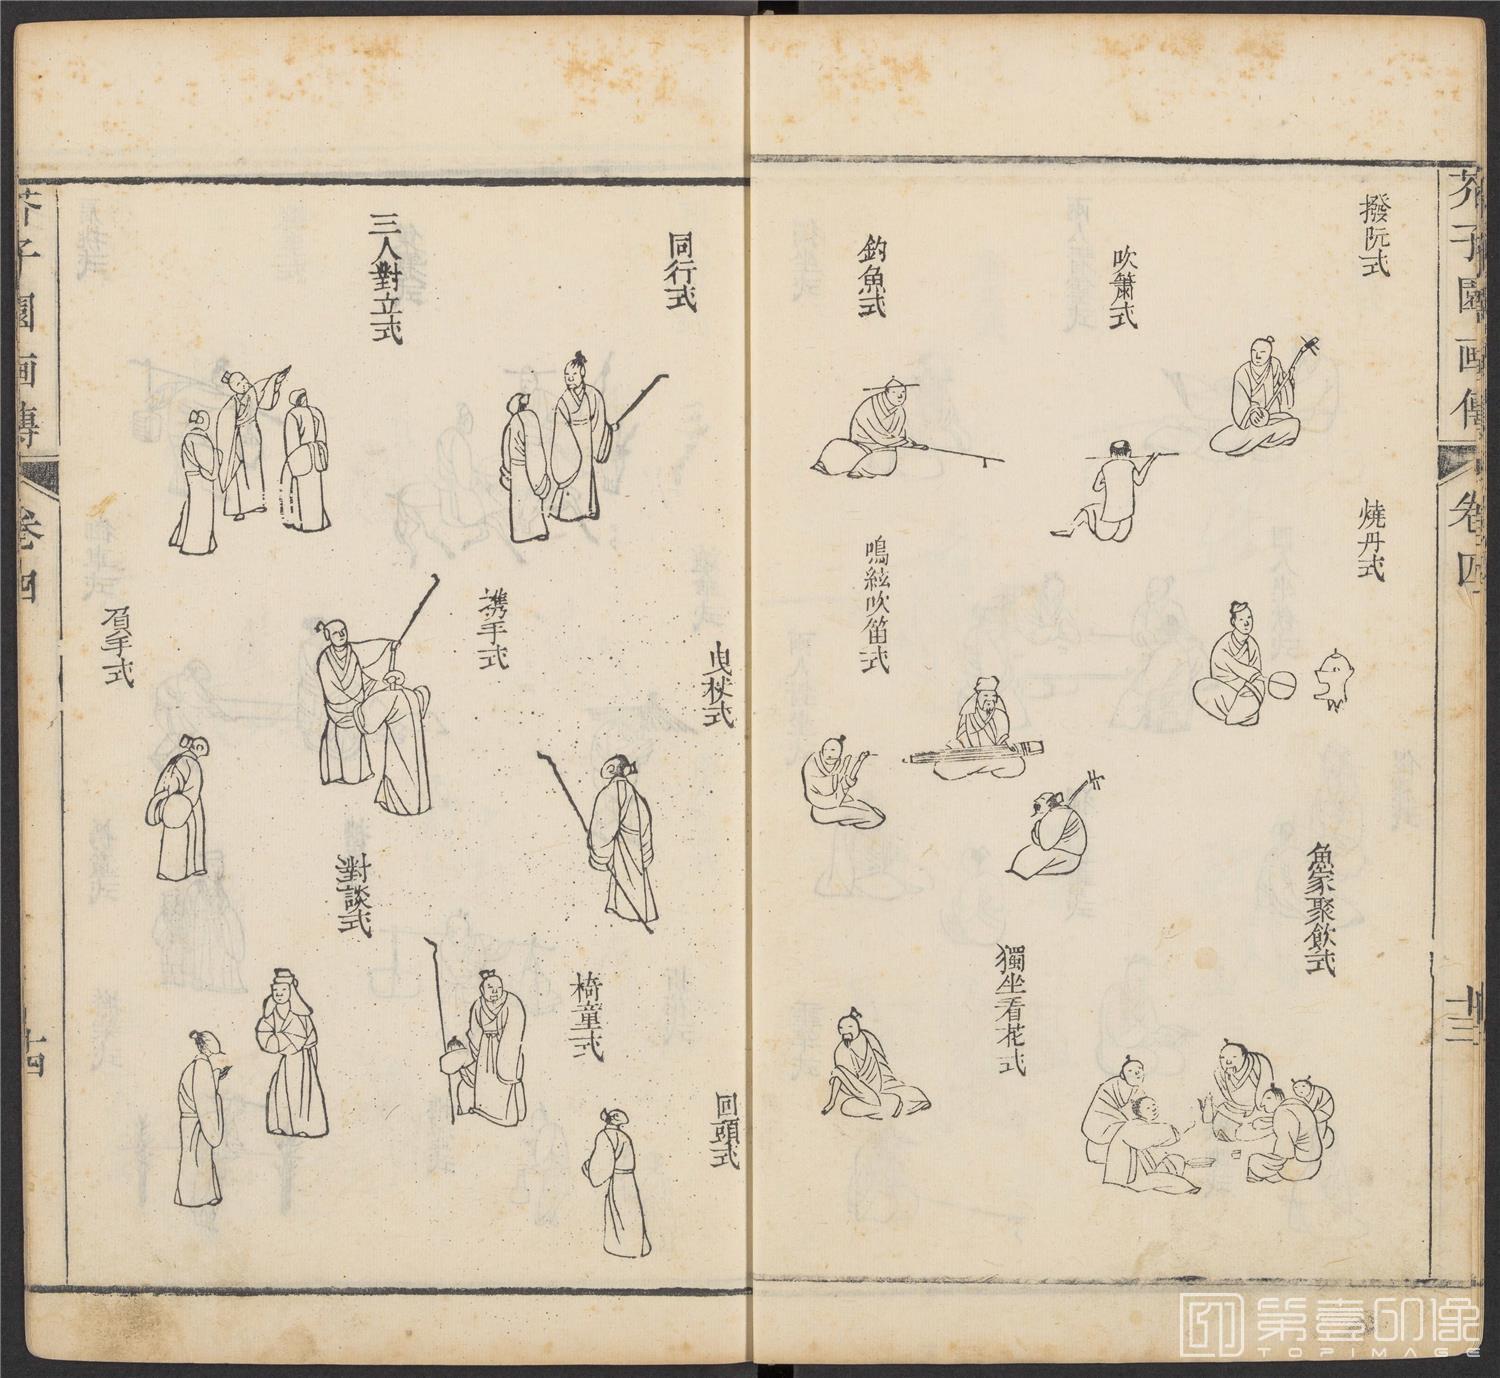 芥子園画傳
卷四
十三
撥阮式
吹簫式
釣魚式
燒丹式
鳴絃吹笛式
魚家聚飲式
獨坐看花式
同行式
三人對立式
曳杖式
携手式
負手式
對談式
椅童式
回頭式
芥子園画傳
卷四
十四
第壹印像
TOPIMAGE